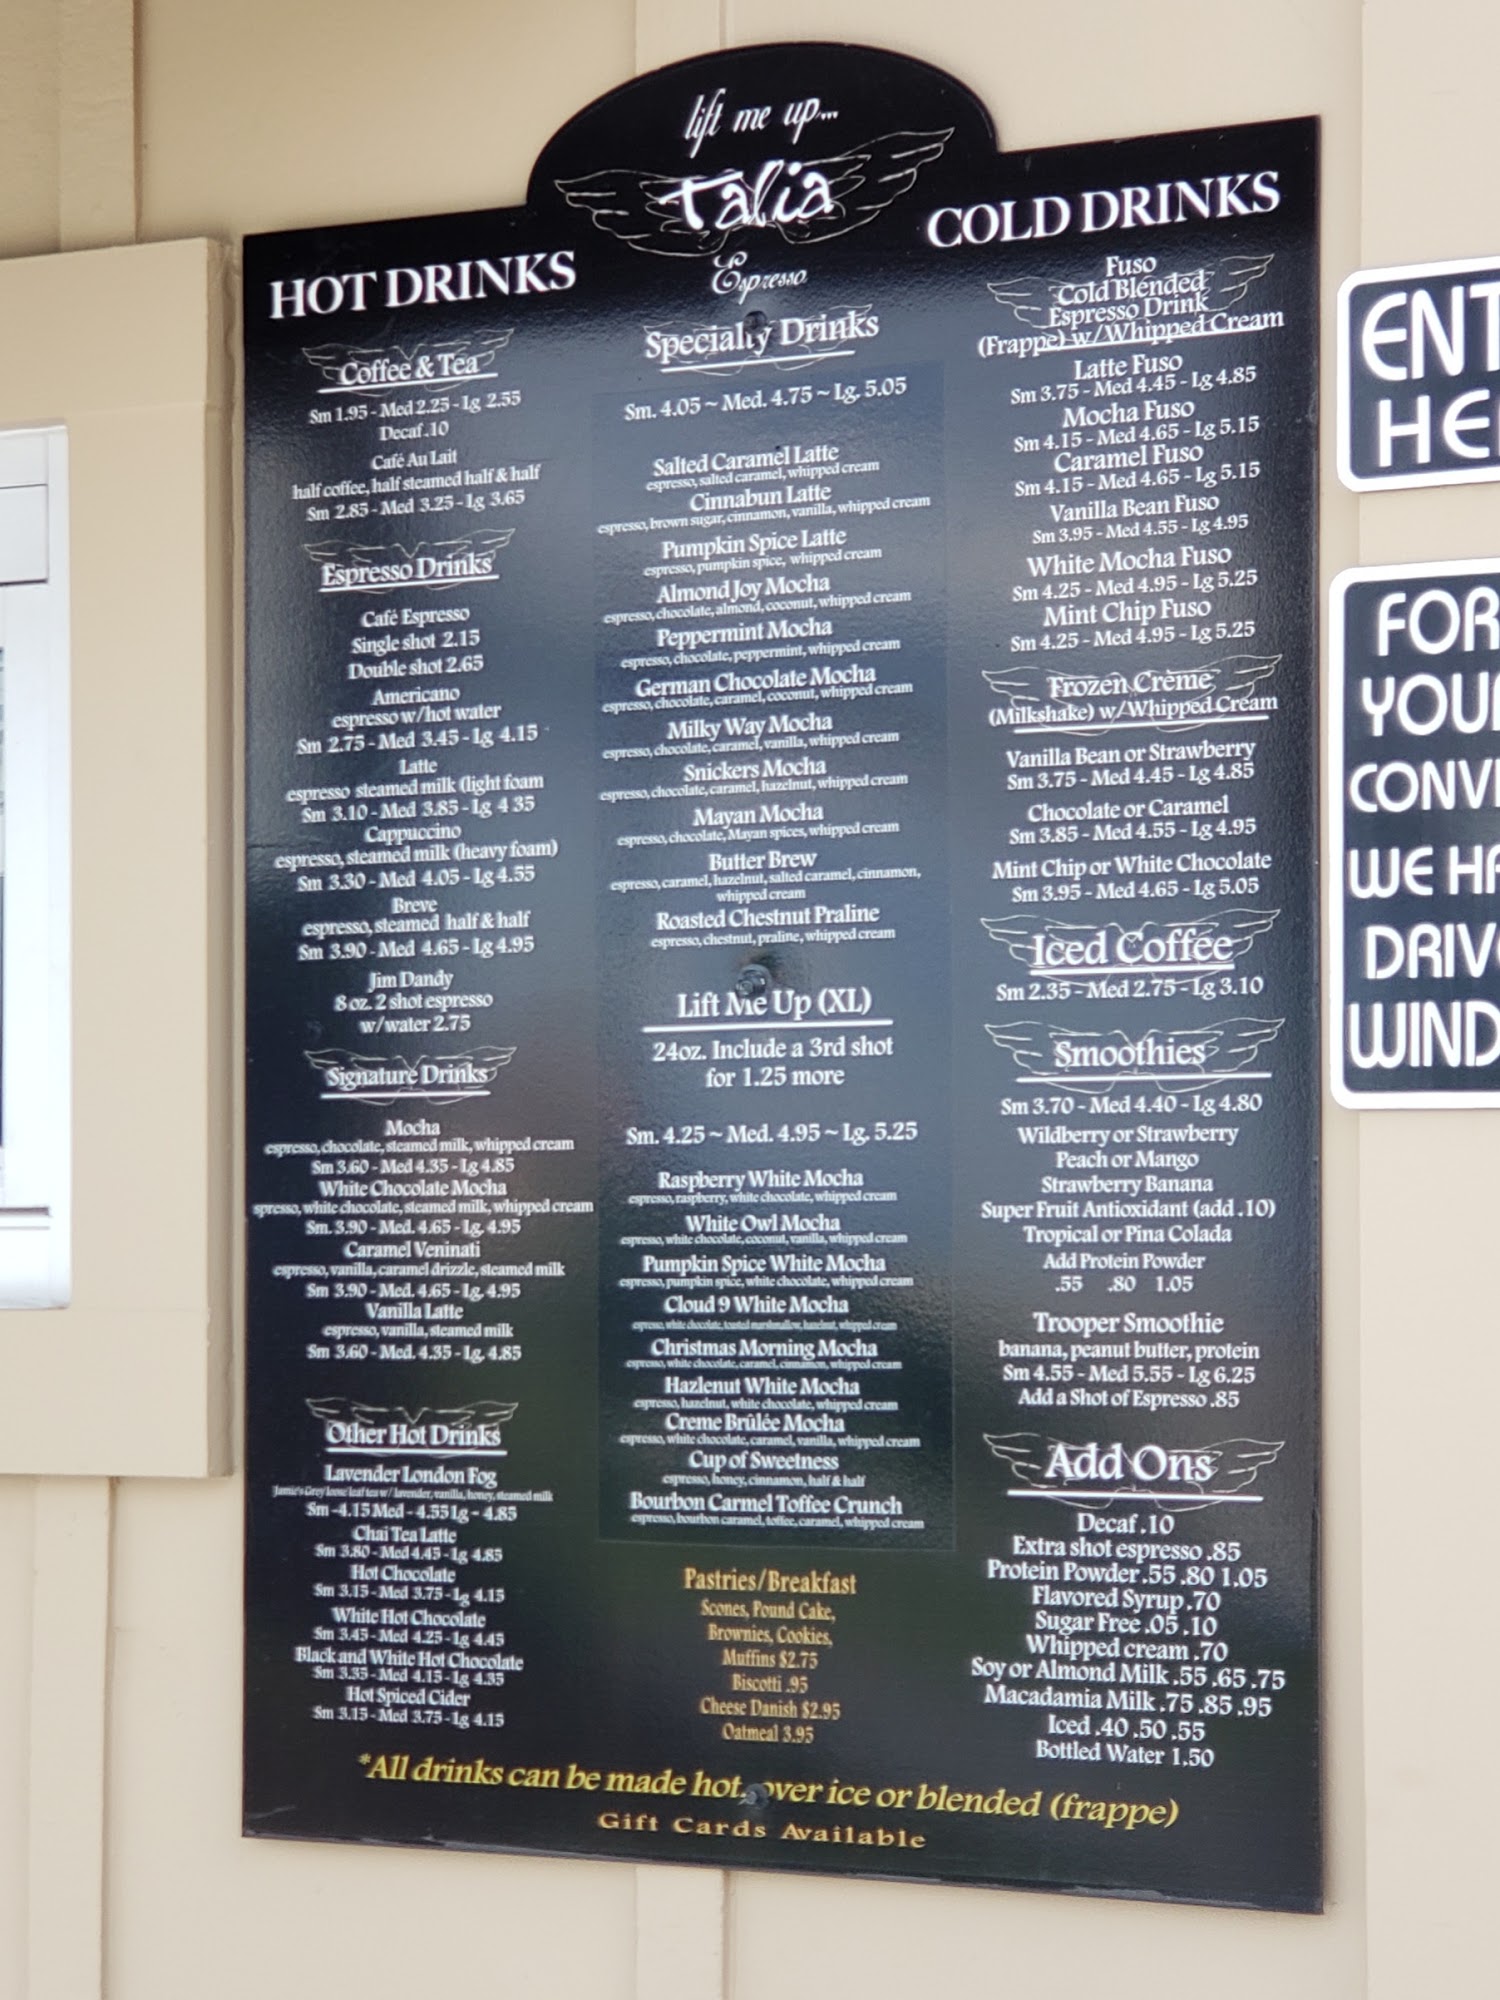 lift me up...
Talia
Espresso
HOT DRINKS
Coffee & Tea
Sm 1.95 - Med 2.25 - Lg 2.55
Decaf .10
Café Au Lait
half coffee, half steamed half & half
Sm 2.85 - Med 3.25 - Lg 3.65
Espresso Drinks
Café Espresso
Single shot 2.15
Double shot 2.65
Americano
espresso w/hot water
Sm 2.75 - Med 3.45 - Lg 4.15
Latte
espresso steamed milk (light foam
Sm 3.10 - Med 3.85 - Lg 4 35
Cappuccino
espresso, steamed milk (heavy foam)
Sm 3.30 - Med 4.05 - Lg 4.55
Breve
espresso, steamed half & half
Sm 3.90 - Med 4.65 - Lg 4.95
Jim Dandy
8 oz. 2 shot espresso
w/water 2.75
Signature Drinks
Mocha
espresso, chocolate, steamed milk, whipped cream
Sm 3.60 - Med 4.35 - Lg 4.85
White Chocolate Mocha
spresso, white chocolate, steamed milk, whipped cream
Sm. 3.90 - Med. 4.65 - Lg. 4.95
Caramel Veninati
espresso, vanilla, caramel drizzle, steamed milk
Sm 3.90 - Med. 4.65 - Lg. 4.95
Vanilla Latte
espresso, vanilla, steamed milk
Sm 3.60 - Med. 4.35 - Lg. 4.85
Other Hot Drinks
Lavender London Fog
Jamie's Grey loose leaf tea w/ lavender, vanilla, honey, steamed milk
Sm -4.15 Med - 4.55 Lg - 4.85
Chai Tea Latte
Sm 3.80 - Med 4.45 - Lg 4.85
Hot Chocolate
Sm 3.15 - Med 3.75 - Lg 4.15
White Hot Chocolate
Sm 3.45 - Med 4.25 - Lg 4.45
Black and White Hot Chocolate
Sm 3.35 - Med 4.15 - Lg 4.35
Hot Spiced Cider
Sm 3.15 - Med 3.75 - Lg 4.15
Specialty Drinks
Sm. 4.05 ~ Med. 4.75 ~ Lg. 5.05
Salted Caramel Latte
espresso, salted caramel, whipped cream
Cinnabun Latte
espresso, brown sugar, cinnamon, vanilla, whipped cream
Pumpkin Spice Latte
espresso, pumpkin spice, whipped cream
Almond Joy Mocha
espresso, chocolate, almond, coconut, whipped cream
Peppermint Mocha
espresso, chocolate, peppermint, whipped cream
German Chocolate Mocha
espresso, chocolate, caramel, coconut, whipped cream
Milky Way Mocha
espresso, chocolate, caramel, vanilla, whipped cream
Snickers Mocha
espresso, chocolate, caramel, hazelnut, whipped cream
Mayan Mocha
espresso, chocolate, Mayan spices, whipped cream
Butter Brew
espresso, caramel, hazelnut, salted caramel, cinnamon,
whipped cream
Roasted Chestnut Praline
espresso, chestnut, praline, whipped cream
Lift Me Up (XL)
24oz. Include a 3rd shot
for 1.25 more
Sm. 4.25 ~ Med. 4.95 ~ Lg. 5.25
Raspberry White Mocha
espresso, raspberry, white chocolate, whipped cream
White Owl Mocha
espresso, white chocolate, coconut, vanilla, whipped cream
Pumpkin Spice White Mocha
espresso, pumpkin spice, white chocolate, whipped cream
Cloud 9 White Mocha
espresso, white chocolate, toasted marshmallow, hazelnut, whipped cream
Christmas Morning Mocha
espresso, white chocolate, caramel, cinnamon, whipped cream
Hazlenut White Mocha
espresso, hazelnut, white chocolate, whipped cream
Creme Brûlée Mocha
espresso, white chocolate, caramel, vanilla, whipped cream
Cup of Sweetness
espresso, honey, cinnamon, half & half
Bourbon Carmel Toffee Crunch
espresso, bourbon caramel, toffee, caramel, whipped cream
Pastries/Breakfast
Scones, Pound Cake,
Brownies, Cookies,
Muffins $2.75
Biscotti .95
Cheese Danish $2.95
Oatmeal 3.95
COLD DRINKS
Fuso
Cold Blended
Espresso Drink
(Frappe) w/Whipped Cream
Latte Fuso
Sm 3.75 - Med 4.45 - Lg 4.85
Mocha Fuso
Sm 4.15 - Med 4.65 - Lg 5.15
Caramel Fuso
Sm 4.15 - Med 4.65 - Lg 5.15
Vanilla Bean Fuso
Sm 3.95 - Med 4.55 - Lg 4.95
White Mocha Fuso
Sm 4.25 - Med 4.95 - Lg 5.25
Mint Chip Fuso
Sm 4.25 - Med 4.95 - Lg 5.25
Frozen Crème
(Milkshake) w/Whipped Cream
Vanilla Bean or Strawberry
Sm 3.75 - Med 4.45 - Lg 4.85
Chocolate or Caramel
Sm 3.85 - Med 4.55 - Lg 4.95
Mint Chip or White Chocolate
Sm 3.95 - Med 4.65 - Lg 5.05
Iced Coffee
Sm 2.35 - Med 2.75 - Lg 3.10
Smoothies
Sm 3.70 - Med 4.40 - Lg 4.80
Wildberry or Strawberry
Peach or Mango
Strawberry Banana
Super Fruit Antioxidant (add .10)
Tropical or Pina Colada
Add Protein Powder
.55 .80 1.05
Trooper Smoothie
banana, peanut butter, protein
Sm 4.55 - Med 5.55 - Lg 6.25
Add a Shot of Espresso .85
Add Ons
Decaf .10
Extra shot espresso .85
Protein Powder .55 .80 1.05
Flavored Syrup .70
Sugar Free .05 .10
Whipped cream .70
Soy or Almond Milk .55 .65 .75
Macadamia Milk .75 .85 .95
Iced .40 .50 .55
Bottled Water 1.50
*All drinks can be made hot, over ice or blended (frappe)
Gift Cards Available
ENT
HE
FOR
YOU
CONV
WE HA
DRIV
WIND